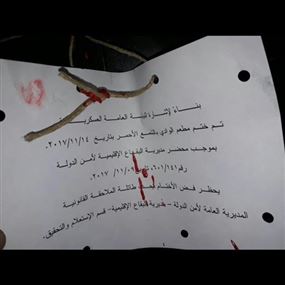 بناء لإشارة النيابة العامة العسكرية
تم ختم مطعم الوادي بالشمع الأحمر بتاريخ ٢٠١٧/١١/١٤
بموجب محضر مديرية البقاع الإقليمية لأمن الدولة
رقم ٦٠١/١٤١
يحظر فض الأختام تحت طائلة الملاحقة القانونية
المديرية العامة لأمن الدولة - مديرية البقاع الإقليمية - قسم الإستعلام والتحقيق.